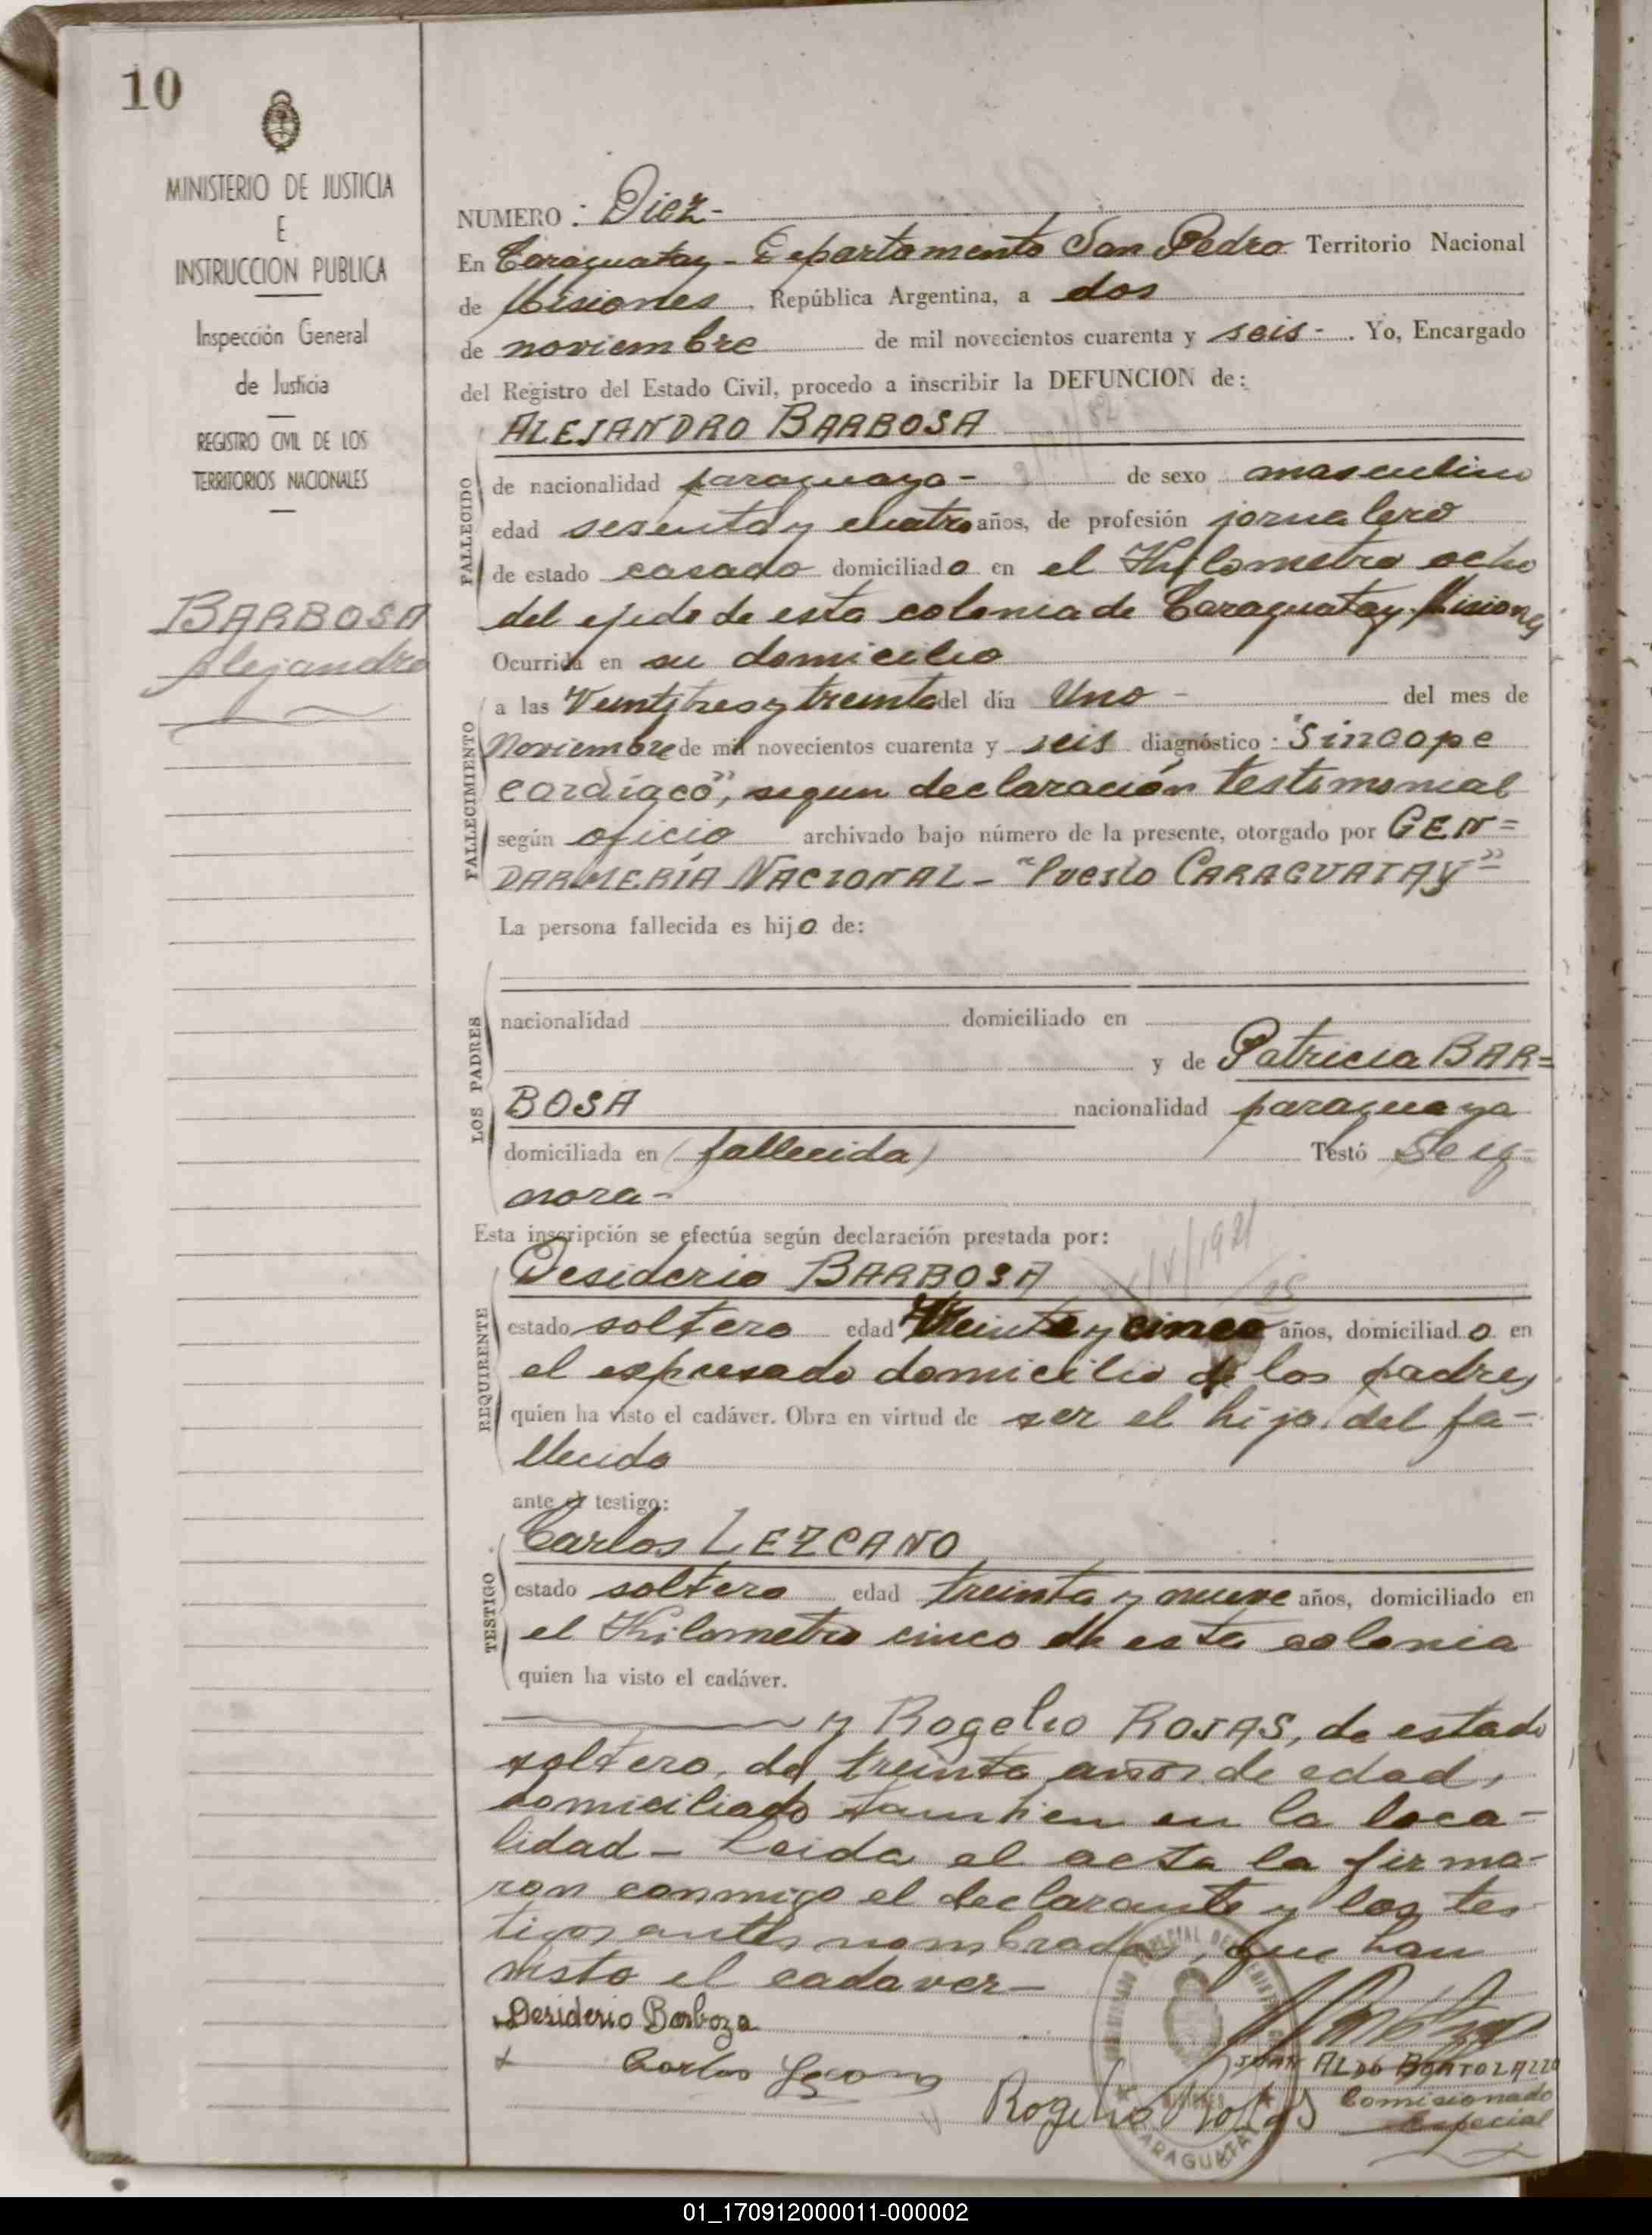 10
MINISTERIO DE JUSTICIA
E
INSTRUCCION PUBLICA
Inspección General
de Justicia
REGISTRO CIVIL DE LOS
TERRITORIOS NACIONALES
BARBOSA
Alejandro
NUMERO : Diez-
En Caraguatay - Departamento San Pedro Territorio Nacional
de Misiones, República Argentina, a dos
de noviembre de mil novecientos cuarenta y seis-. Yo, Encargado
del Registro del Estado Civil, procedo a inscribir la DEFUNCION de:
ALEJANDRO BARBOSA
FALLECIDO
de nacionalidad paraguaya- de sexo masculino
edad sesenta y cuatro años, de profesión jornalero
de estado casado domiciliado en el Kilometro ocho
del ejido de esta colonia de Caraguatay Misiones
FALLECIMIENTO
Ocurrido en su domicilio
a las Veintitres y treinta del día Uno - del mes de
Noviembre de mil novecientos cuarenta y seis diagnóstico : "Síncope
cardíaco", segun declaración testimonial
según oficio archivado bajo número de la presente, otorgado por GEN=
DARMERÍA NACIONAL - "Puesto CARAGUATAY"=
La persona fallecida es hijo de:
LOS PADRES
nacionalidad domiciliado en
y de Patricia BAR=
BOSA nacionalidad paraguaya
domiciliada en (fallecida) Testó Se ig-
nora-
Esta inscripción se efectúa según declaración prestada por:
REQUIRENTE
Desiderio BARBOSA
estado soltero edad treinta y cinco años, domiciliado en
el expresado domicilio de los padres
quien ha visto el cadáver. Obra en virtud de ser el hijo del fa-
llecido
ante el testigo:
TESTIGO
Carlos LEZCANO
estado soltero edad treinta y nueve años, domiciliado en
el Kilometro cinco de esta colonia
quien ha visto el cadáver.
y Rogelio ROJAS, de estado
soltero, de treinta años de edad,
domiciliado tambien en la loca-
lidad - Leida el acta la firma-
ron conmigo el declarante y los tes-
tigos antes nombrados, que han
visto el cadaver-
Desiderio Barboza
Carlos
Rogelio Rojas
JUAN ALDO BORTOLAZZO
Comisionado
Especial
CARAGUATAY
01_170912000011-000002